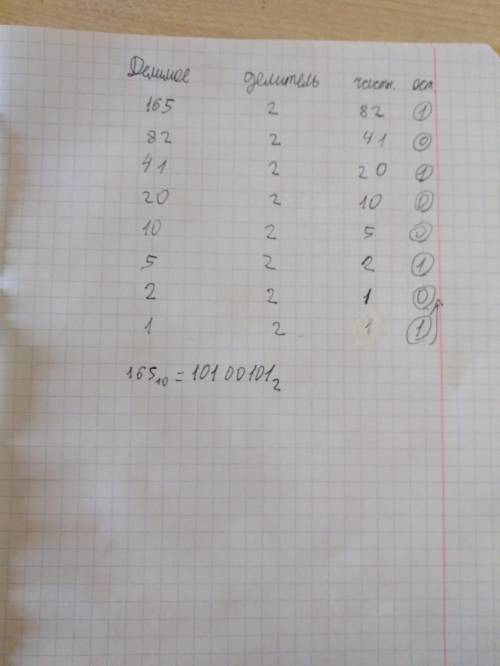 Делимое делитель частн. ост.
165 2 82 1
82 2 41 0
41 2 20 1
20 2 10 0
10 2 5 0
5 2 2 1
2 2 1 0
1 2 1 1
165₁₀ = 10100101₂